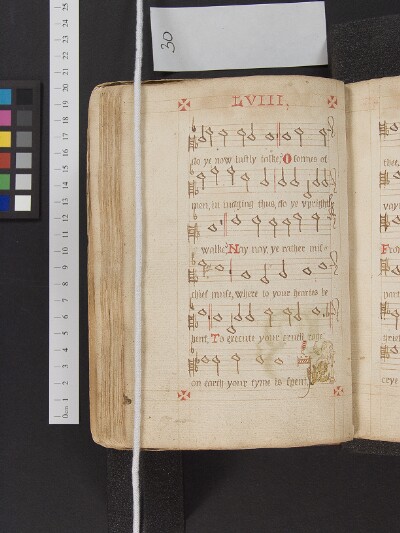 30
LVIII.
do ye now iustly talke, O sonnes of
men, in iudging thus, do ye vprightly
walke? Nay nay, ye rather mis-
chief muse, where to your heartes be
bent, To execute your
on earth your tyme is spent.